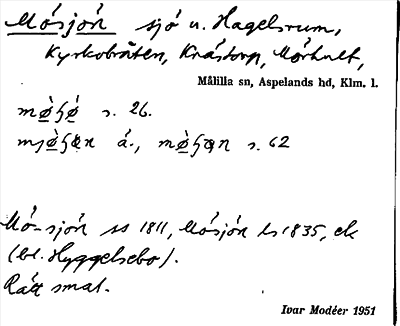 Mósjón sjö u. Hagelsrum,
Kyrkobråten, Knåstorp, Mörhult,
Målilla sn, Aspelands hd, Klm. l.
s. 26.
á., s. 62
Mó-sjón ss 1811, Mósjón ls 1835, ek
(bl. Hyggelsebo).
Rätt smal.
Ivar Modéer 1951